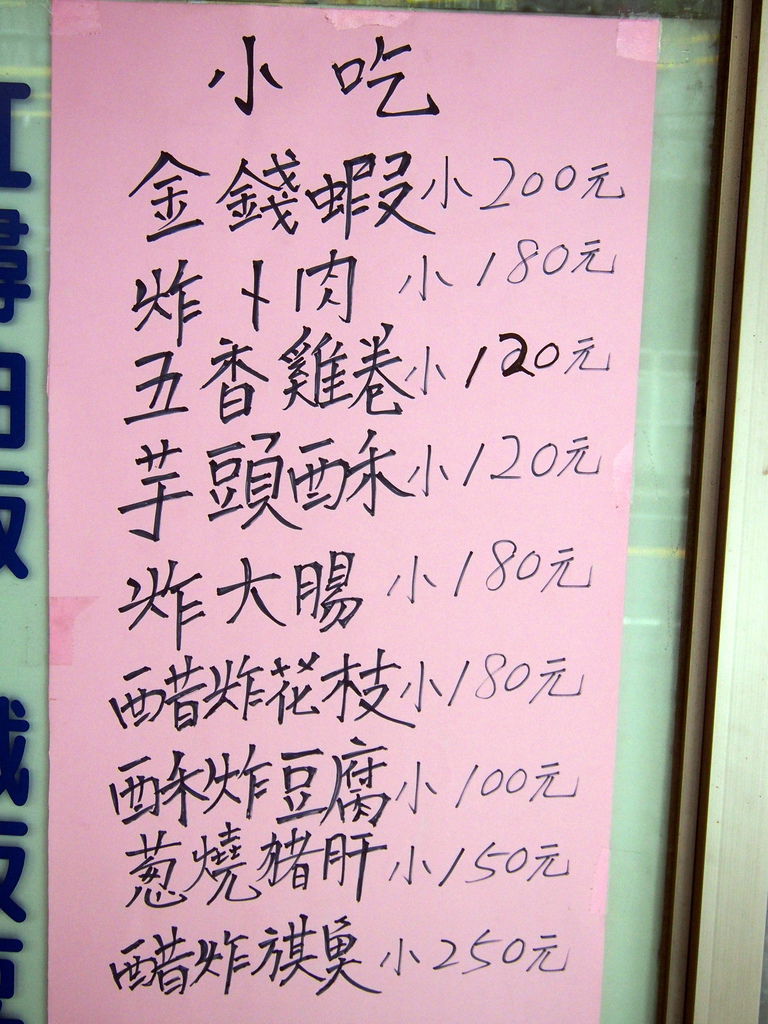 小吃
金錢蝦小200元
炸卜肉 小180元
五香雞卷小120元
芋頭酥小120元
炸大腸 小180元
醋炸花枝小180元
酥炸豆腐小100元
蔥燒豬肝小150元
醋炸旗魚小250元